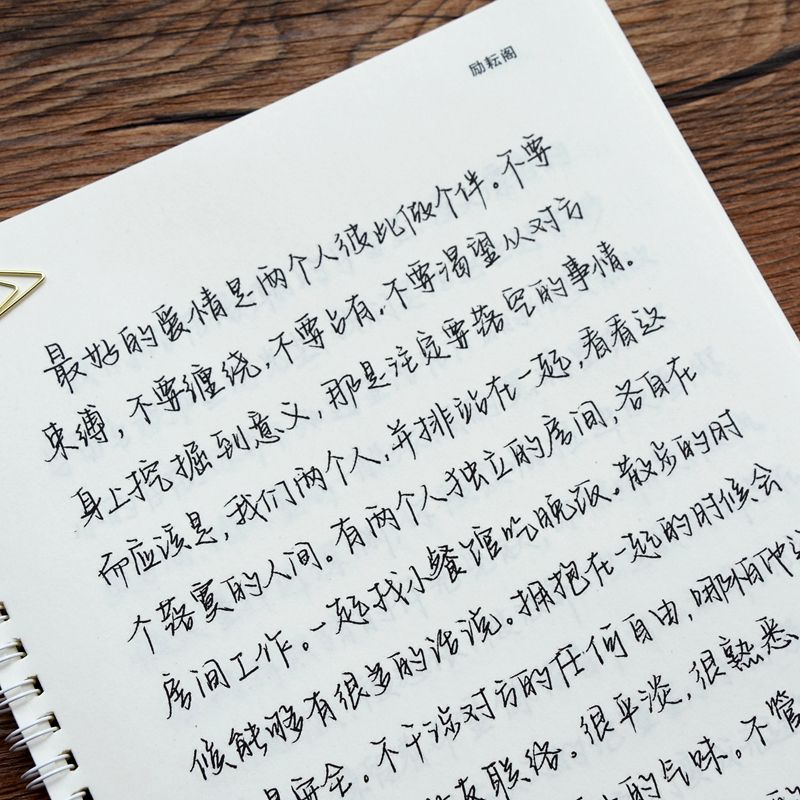 励耘阁
最好的爱情是两个人彼此做个伴。不要
束缚，不要缠绕，不要占有，不要渴望从对方
身上挖掘到意义，那是注定要落空的事情。
而应该是，我们两个人，并排站在一起，看看这
个落寞的人间。有两个人独立的房间，各自在
房间工作。一起找小餐馆吃晚饭。散步的时
候能够有很多的话说。拥抱在一起的时候会
是安全。不干涉对方的任何自由，哪怕
联络。很平淡，很熟悉、
的气味。不管